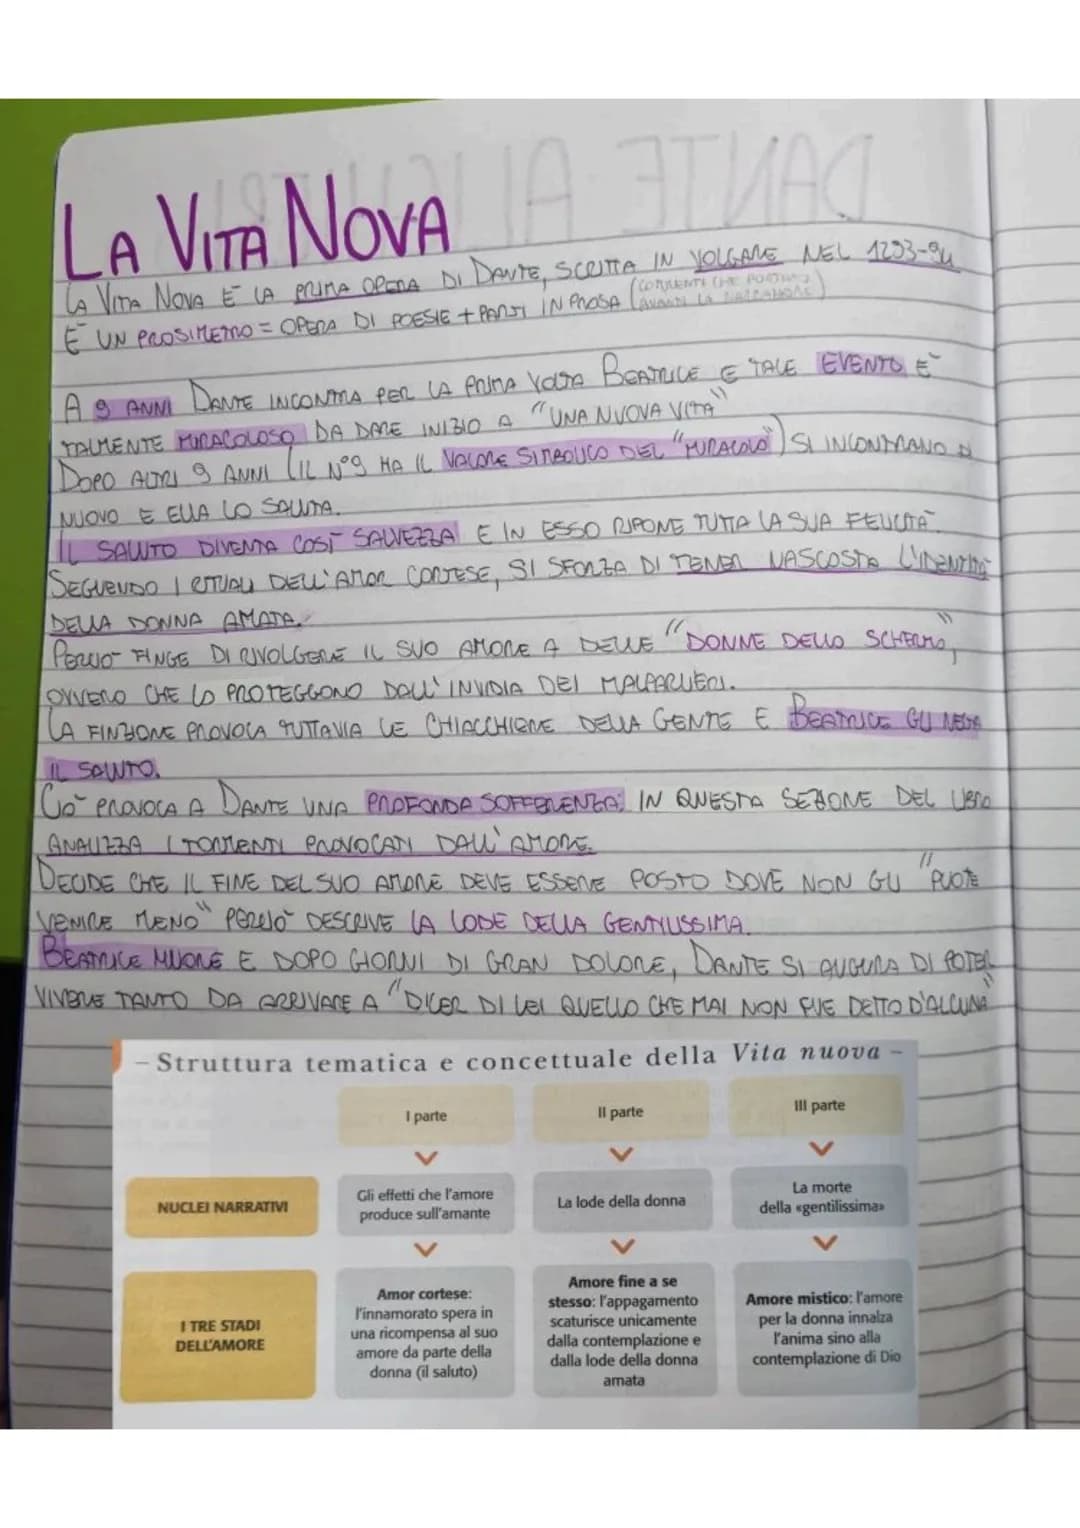 LA VITA NOVA
LA VITA NOVA È LA PRIMA OPERA DI DANTE, SCRITTA IN VOLGARE NEL 1293-94
È UN PROSIMETRO = OPERA DI POESIE + PARTI IN PROSA (COMMENTI CHE PORTANO AVANTI LA NARRAZIONE)
A 9 ANNI DANTE INCONTRA PER LA PRIMA VOLTA BEATRICE E TALE EVENTO È
TALMENTE MIRACOLOSO DA DARE INIZIO A "UNA NUOVA VITA"
DOPO ALTRI 9 ANNI (IL N°9 HA IL VALORE SIMBOLICO DEL "MIRACOLO") SI INCONTRANO DI
NUOVO E ELLA LO SALUTA.
IL SALUTO DIVENTA COSÌ SALVEZZA E IN ESSO RIPONE TUTTA LA SUA FELICITÀ.
SEGUENDO I RITUALI DELL'AMOR CORTESE, SI SFORZA DI TENER NASCOSTA L'IDENTITÀ
DELLA DONNA AMATA.
PERCIÒ FINGE DI RIVOLGERE IL SUO AMORE A DELLE "DONNE DELLO SCHERMO",
OVVERO CHE LO PROTEGGONO DALL'INVIDIA DEI MALPARLIERI.
LA FINZIONE PROVOCA TUTTAVIA LE CHIACCHIERE DELLA GENTE E BEATRICE GLI NEGA
IL SALUTO.
CIÒ PROVOCA A DANTE UNA PROFONDA SOFFERENZA: IN QUESTA SEZIONE DEL LIBRO
ANALIZZA I TORMENTI PROVOCATI DALL'AMORE.
DECIDE CHE IL FINE DEL SUO AMORE DEVE ESSERE POSTO DOVE NON GLI "PUOTE
VENIRE MENO" PERCIÒ DESCRIVE LA LODE DELLA GENTILISSIMA.
BEATRICE MUORE E DOPO GIORNI DI GRAN DOLORE, DANTE SI AUGURA DI POTER
VIVERE TANTO DA ARRIVARE A "DICER DI LEI QUELLO CHE MAI NON FUE DETTO D'ALCUNA"
– Struttura tematica e concettuale della Vita nuova –
I parte
II parte
III parte
NUCLEI NARRATIVI
Gli effetti che l'amore
produce sull'amante
La lode della donna
La morte
della «gentilissima»
I TRE STADI
DELL'AMORE
Amor cortese:
l'innamorato spera in
una ricompensa al suo
amore da parte della
donna (il saluto)
Amore fine a se
stesso: l'appagamento
scaturisce unicamente
dalla contemplazione e
dalla lode della donna
amata
Amore mistico: l'amore
per la donna innalza
l'anima sino alla
contemplazione di Dio